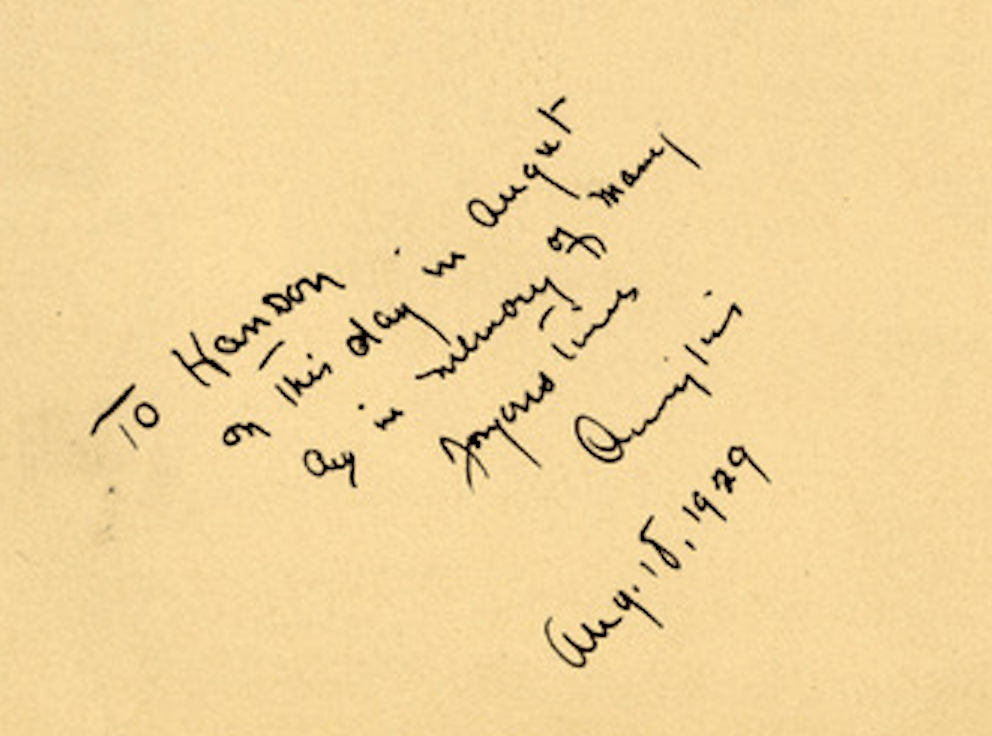 To Hanson
on this day in August
in memory of many
Joyous Times
Aug. 18, 1929